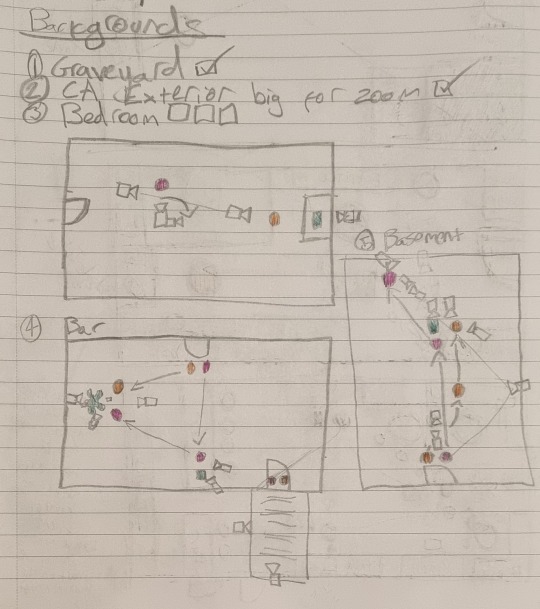 Backgrounds
① Graveyard
② CA Exterior big for zoom
③ Bedroom
⑤ Basement
④ Bar